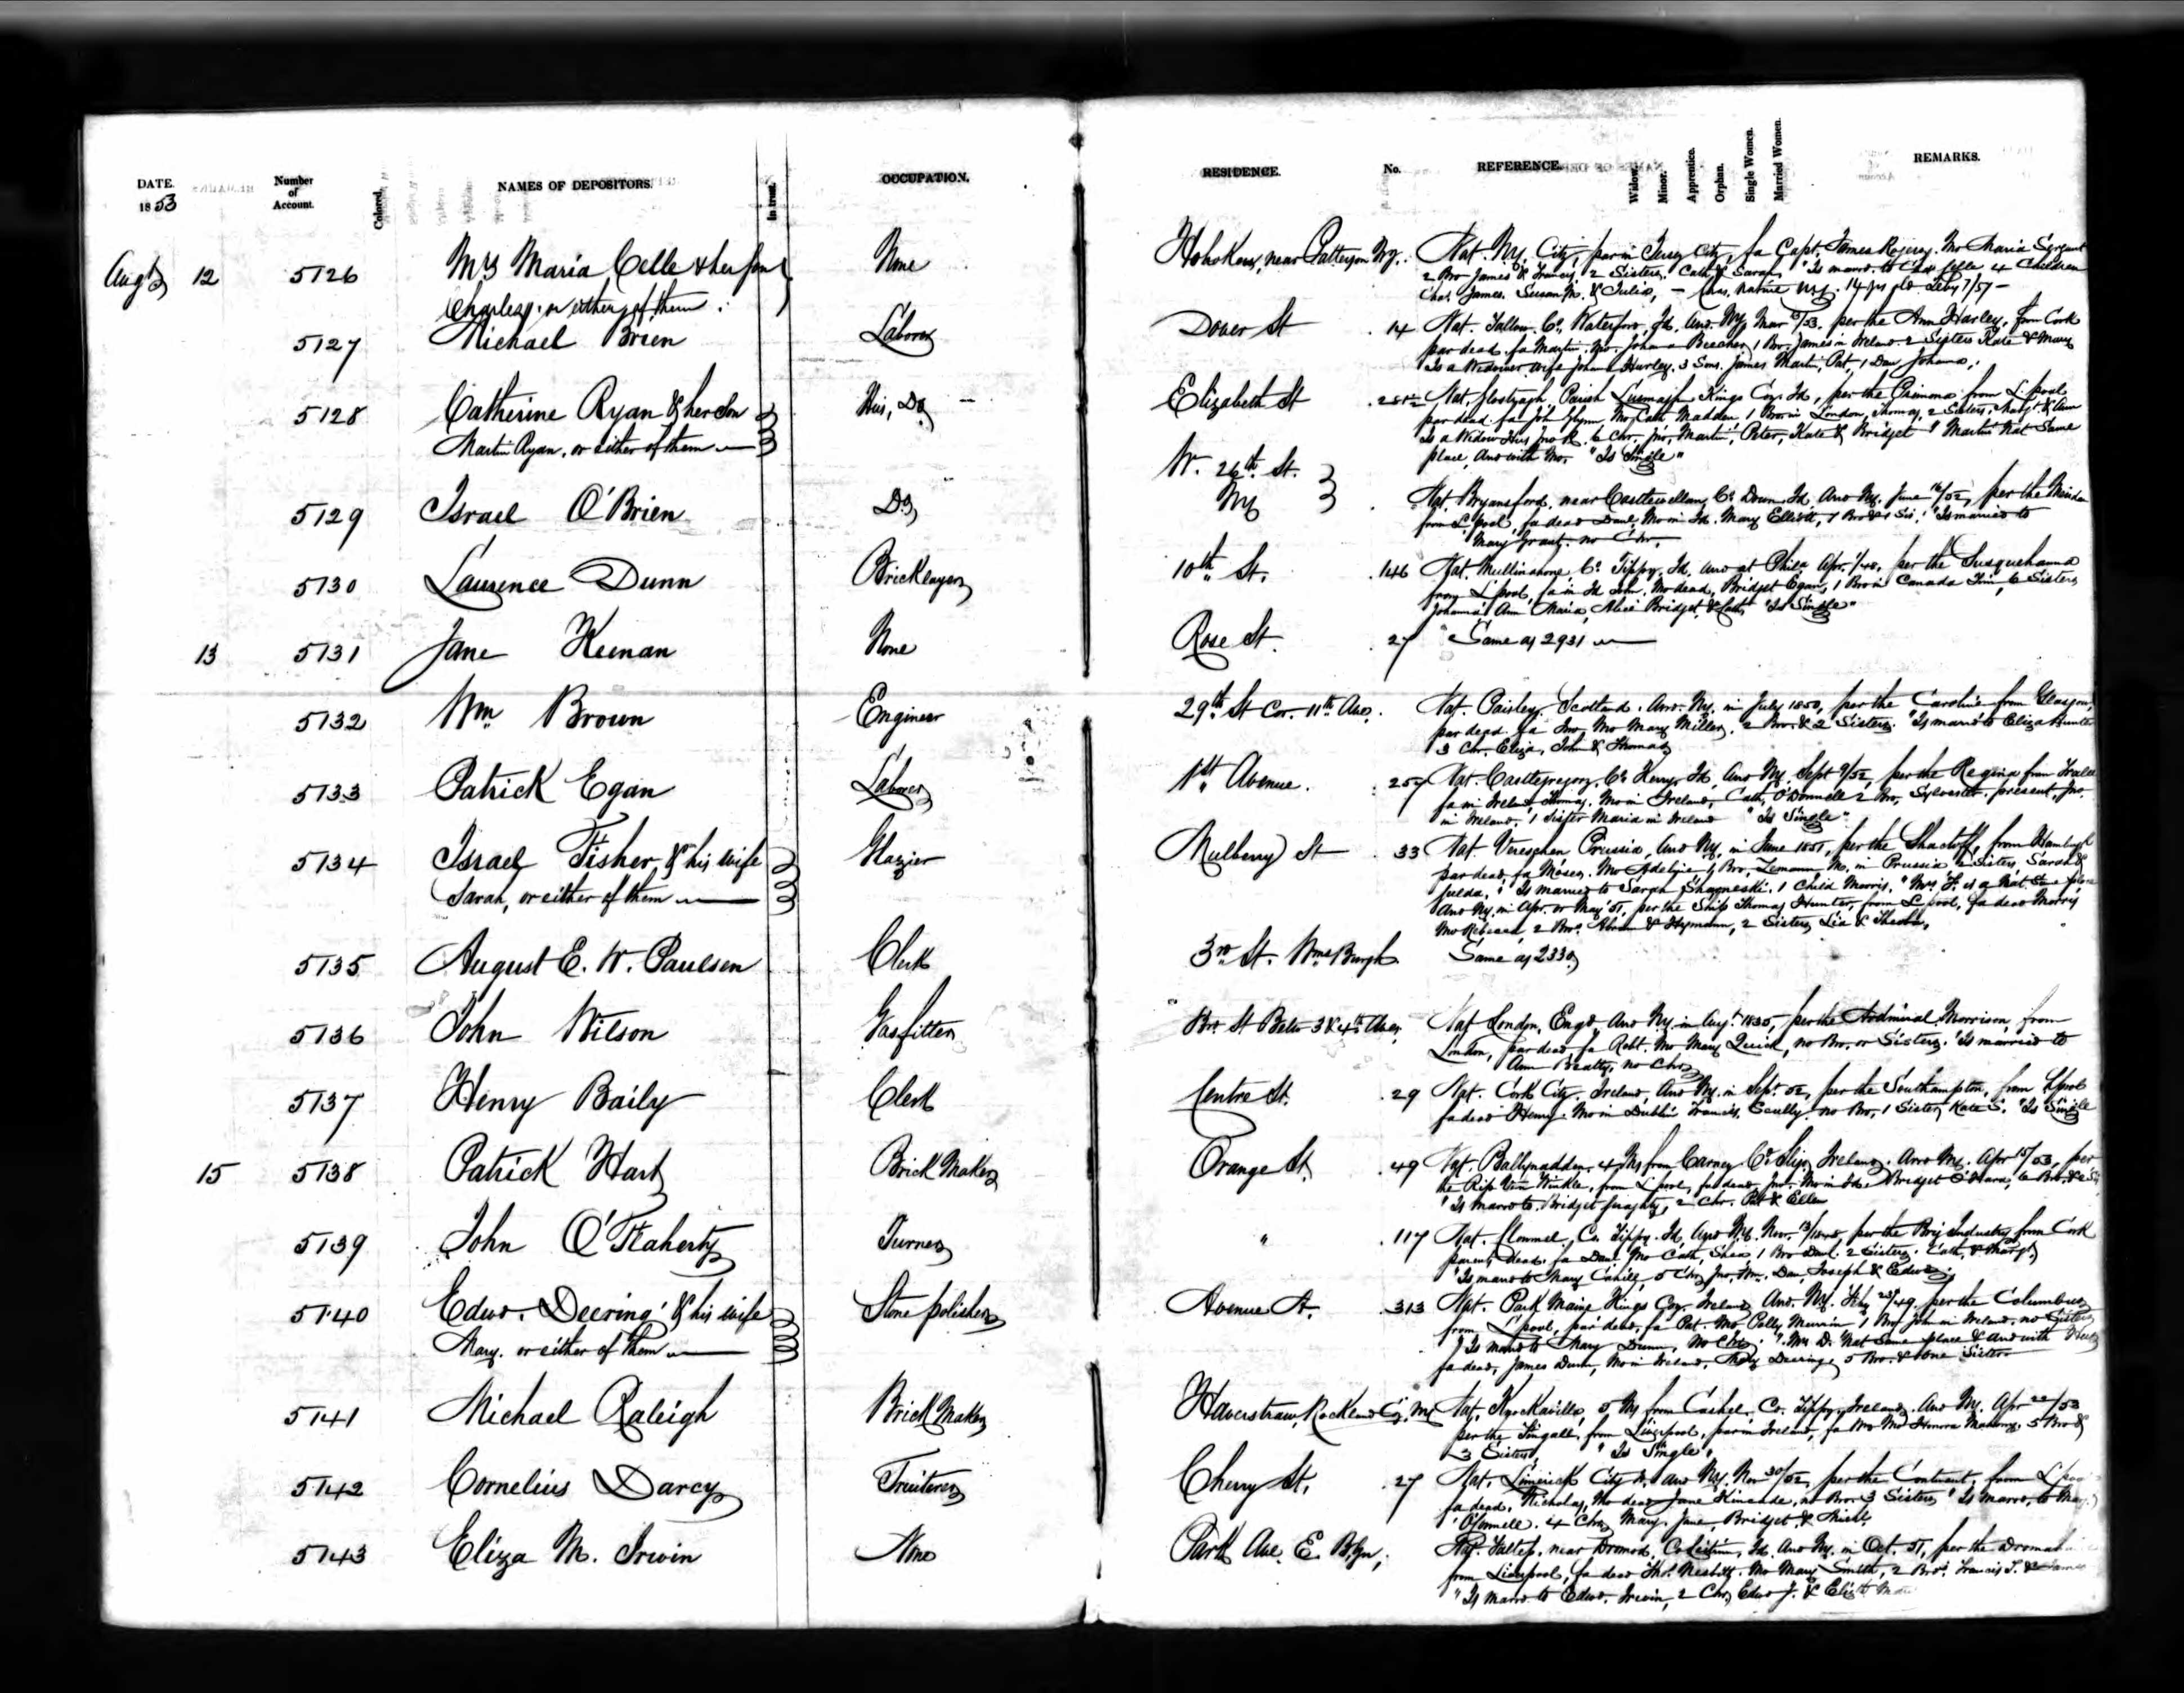 DATE.
1853
Number
of
Account.
Colored.
NAMES OF DEPOSITORS.
In trust.
OCCUPATION.
RESIDENCE.
No.
REFERENCE.
Widow.
Minor.
Apprentice.
Orphan.
Single Women.
Married Women.
REMARKS.
Augt 12 5126 Mrs Maria Celle & her Son None
Charles, or either of them
Hoboken, near Patterson Nat. Ny. City, par in Jersey City, fa Capt. James Mo Maria
2 Bro James & Francis, 2 Sisters, Cath. & Sarah, "Is marrd. to Chas Celle 4 Children
Chas. James. Susan M. & Julia, — Chas. native Ny. 14 yrs old
5127 Michael Brien Laborer Dover St 14 Nat. Tallow, Co. Waterford, Id. Arrd. Ny. Mar /53, per the Ann Harley, from Cork
par dead, fa Martin, Mo. Johanna Beecher, 1 Bro. James in Ireland 2 Sisters Kate & Mary
Is a Widower wife Johanna Hurley. 3 Sons. James Martin, Pat, 1 Dau Johana,
5128 Catherine Ryan & her Son Elizabeth St
Martin Ryan, or either of them
Parish Lusmagh Kings Coy. Id., per the from Lpool,
par dead. fa Joh Flynn, Mo Cath Madden 1 Bro in London, Thomas, 2 Sisters, Margt. & Ann
Is a Widow Hus Jno R. 6 Chr. Jno, Martin, Peter, Kate & Bridget " Martin Nat Same
place, Arrd with Mo. "Is Single"
5129 Israel O'Brien Do W. 26th St.
Ny
Nat. Bryansford, near Castlewellan, Co. Down, Id. Arrd Ny. June 16/52, per the
from Lpool, fa dead Danl, Mo in Id. Mary Elliott, 1 Bro & 1 Sis. "Is married to
Mary Grant. no Chr.
5130 Laurence Dunn Bricklayer 10th St. 146 Nat. Mullinahone, Co. Tippy. Id. Arrd at Phila Apr. 1/48, per the Susquehanna
from Lpool, fa in Id John. Mo dead, Bridget Egan, 1 Bro in Canada Tim, 6 Sisters
Johanna, Ann Maria, Alice Bridget & Cath, "Is Single"
13 5131 Jane Keenan None Rose St. 27 Same as 2931
5132 Wm Brown Engineer 29th St Cor. 11th Ave. Nat. Paisley, Scotland. Arrd. Ny. in July 1850, per the Caroline from Glasgow,
par dead. fa Jno, Mo Mary Miller, 2 Bro. & 2 Sisters. "Is marrd to Eliza Hunter
3 Chr. Eliza, John & Thomas
5133 Patrick Egan Laborer 1st Avenue. 257 Nat. Castlegregory, Co. Kerry, Id. Arrd Ny. Sept 9/52, per the Regina from Tralee
fa in Ireland, Thomas. Mo in Ireland, Cath, O'Donnell 2 Bro, Sylvester, present, Jno.
in Ireland, 1 Sister Maria in Ireland "Is Single"
5134 Israel Fisher & his wife Glazier Mulberry St 33
Sarah, or either of them
Nat. Prussia, Arrd Ny. in June 1851, per the from Hamburgh
par dead, fa Moses. Mo Bro, in Prussia 2 Sisters Sarah &
"Is married to Sarah 1 Child Morris, "Mrs F. is a Nat. Same place
Arrd Ny. in Apr. or May 51, per the Ship Thomas Hunter, from Lpool, fa dead Morris
Mo Rebecca, 2 Bro. Abram & Hymann, 2 Sisters Lia &
5135 August E. W. Paulsen Clerk 3rd St. Wms Burgh Same as 2330
5136 John Wilson Gasfitter St Betw 3 & 4th Aves. Nat London, Engd. Arrd Ny. in Augt. 1835, per the Admiral Morrison, from
London, par dead, fa Robt. Mo Mary Quick, no Bro. or Sisters. "Is married to
Ann Beatty, no Chr
5137 Henry Baily Clerk Centre St. 29 Nat. Cork City, Ireland, Arrd Ny. in Sept. 52, per the Southampton, from Lpool
fa dead Henry. Mo in Dublin Frances, Scully no Bro, 1 Sister Kate S. "Is Single
15 5138 Patrick Hart Brick Maker Orange St. 49 Nat. Ballynadden, 4 Ms from Carney Co. Sligo Ireland. Arrd Ny. Apr 15/53, per
the Rip Van Winkle, from Lpool, fa dead, Jno. Mo in Id. Bridget O'Hara, 6 Bro. &
"Is marrd to Bridget 2 Chr. Pat & Ellen
5139 John O'Flaherty Turner " 117 Nat. Clonmel, Co. Tippy. Id. Arrd Ny. Nov. per the Brig Industry from Cork
parents dead. fa Danl. Mo Cath, Shea 1 Bro Danl. 2 Sisters. Cath, & Margt,
"Is marrd to Mary Cahill, 5 Chr, Jno, Wm. Dan, Joseph & Edwd.
5140 Edwd. Deering & his wife Stone polisher Avenue A. 313
Mary. or either of them
Nat. Kings Coy. Ireland, Arrd. Ny. 28/49, per the Columbus
from Lpool, par dead, fa Pat. Mo Polly 1 Bro John in Ireland. no Sisters
Is marrd to Mary Dunn, No Chr. "Mrs D. Nat Same place & Arrd with Hus
fa dead, James Dunn, Mo in Ireland, Deering, 5 Bro. & One Sister
5141 Michael Raleigh Brick Maker Haverstraw, Rockland Cy. Ny Nat. 5 Ms from Cashel, Co. Tippy, Ireland. Arrd Ny. Apr 22/53
per the from Liverpool, par in Ireland, fa Mo Honora Mahony, 5 Bro &
3 Sisters, "Is Single"
5142 Cornelius Darcy Fruiterer Cherry St. 27 Nat. Limerick City Arrd Ny. Nov 30/52, per the Continent, from Lpool
fa dead, Nicholas, Mo dead Jane no Bro. 3 Sisters "Is marrd, to
4 Chr. Mary, Jane, Bridget & Michl.
5143 Eliza M. Irwin None Park Ave. E. Bklyn, near Dromod, Co Leitrim, Id. Arrd Ny. in Oct. 51, per the
from Liverpool, fa dead Thos. Nesbitt. Mo Mary Smith, 2 Bro. Francis T. & James
"Is marrd to Edwd. Irwin, 2 Chr, Edwd J. &